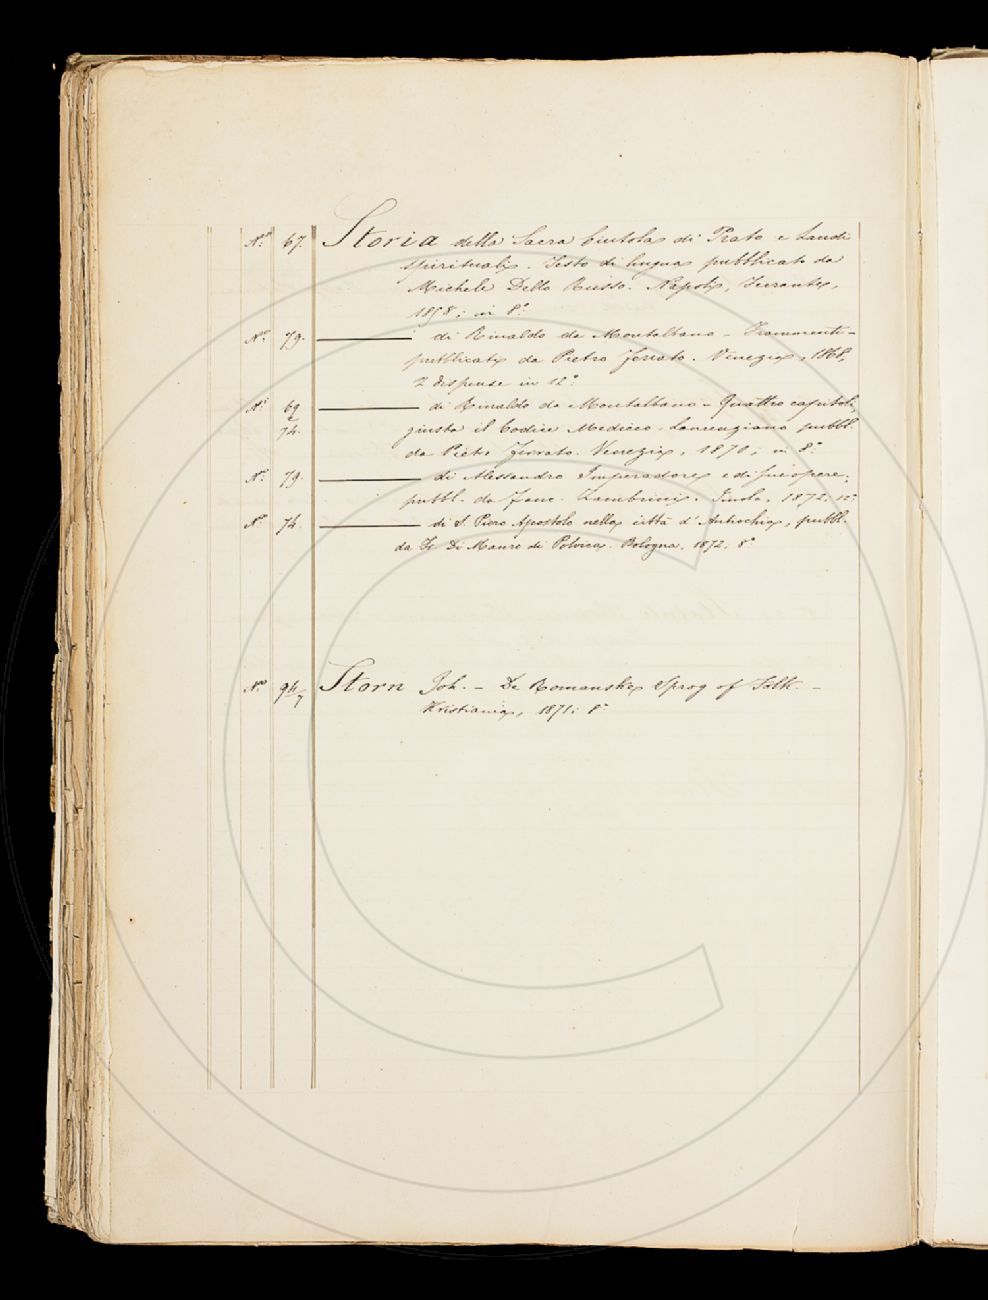 N.º 67. Storia della Sacra Cintola di Prato e Laudi
spirituali. Testo di lingua pubblicato da
Michele Dello Russo. Napoli, Ferrante,
1858; in 8º
N.º 79. ——— di Rinaldo da Montalbano – Frammenti
pubblicati da Pietro Ferrato. Venezia, 1868,
2 dispense in 12º
N.º 69 ——— di Rinaldo da Montalbano – Quattro capitoli,
74. giusta il Codice Mediceo-Laurenziano pubbl.
da Pietro Ferrato. Venezia, 1870; in 8º
N.º 79. ——— di Alessandro Imperadore e di sue opere,
pubbl. da Zambrini. Imola, 1872, 12º
N.º 74. ——— di S. Piero Apostolo nella città d'Antochia, pubbl.
da Fr. Di Mauro di Polvica. Bologna, 1872; 8º
N.º 94/7 Storn Joh. – De Romanske Sprog og Folk. –
Kristiania, 1871; 8º